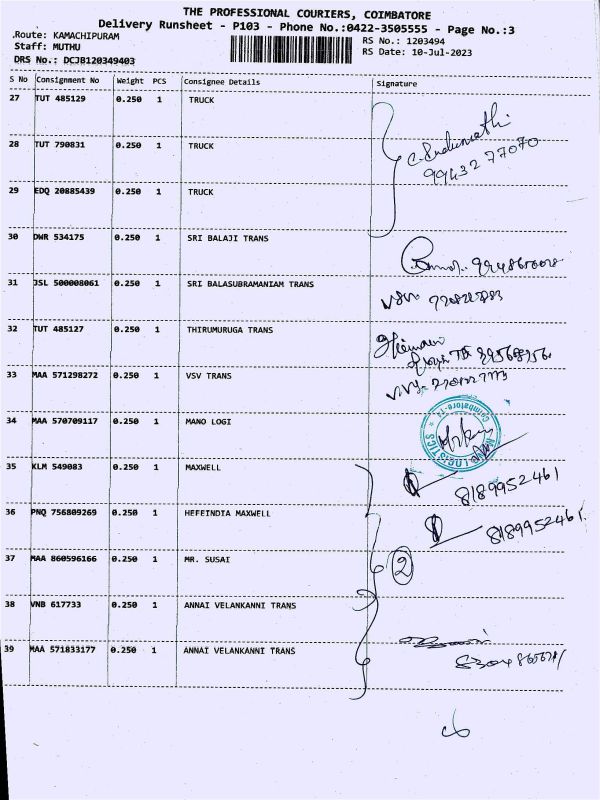 THE PROFESSIONAL COURIERS, COIMBATORE
Delivery Runsheet - P103 - Phone No.:0422-3505555 - Page No.:3
Route: KAMACHIPURAM
RS No.: 1203494
Staff: MUTHU
RS Date: 10-Jul-2023
DRS No.: DCJB120349403
S No Consignment No Weight PCS Consignee Details Signature
27 TUT 485129 0.250 1 TRUCK
28 TUT 790831 0.250 1 TRUCK
99432 77070
29 EDQ 20885439 0.250 1 TRUCK
30 DWR 534175 0.250 1 SRI BALAJI TRANS
31 JSL 500008061 0.250 1 SRI BALASUBRAMANIAM TRANS
32 TUT 485127 0.250 1 THIRUMURUGA TRANS
33 MAA 571298272 0.250 1 VSV TRANS
34 MAA 570709117 0.250 1 MANO LOGI
35 KLM 549083 0.250 1 MAXWELL
8189952461
36 PNQ 756809269 0.250 1 HEFEINDIA MAXWELL
8189952461
37 MAA 860596166 0.250 1 MR. SUSAI
2
38 VNB 617733 0.250 1 ANNAI VELANKANNI TRANS
39 MAA 571833177 0.250 1 ANNAI VELANKANNI TRANS